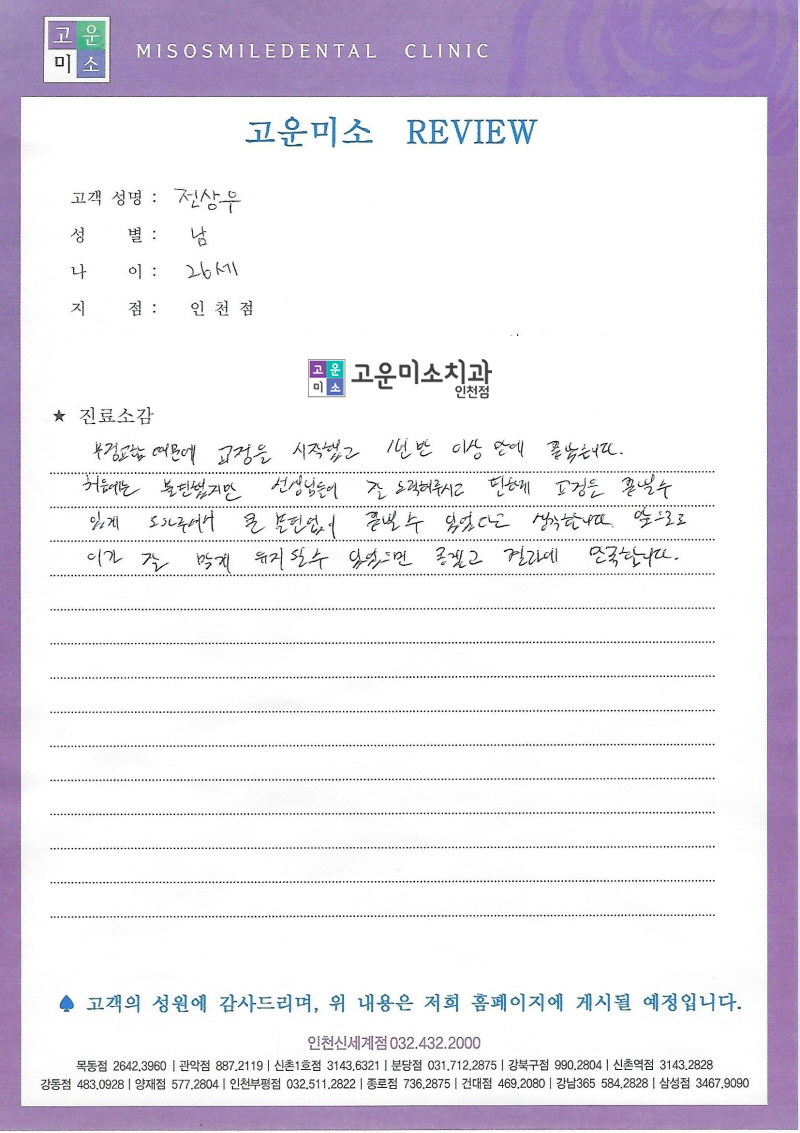 고운
미소
MISOSMILEDENTAL CLINIC
고운미소 REVIEW
고객 성명 : 전상우
성 별 : 남
나 이 : 26세
지 점 : 인 천 점
고운
미소
고운미소치과
인천점
★ 진료소감
부정교합 때문에 교정을 시작했고 1년 반 이상 만에 끝났습니다.
처음에는 불편했지만 선생님들이 잘 노력해주시고 편하게 교정을 끝낼수
있게 도와주셔서 큰 불편없이 끝낼 수 있었다고 생각합니다. 앞으로도
이가 잘 맞게 유지될수 있었으면 좋겠고 결과에 만족합니다.
♠ 고객의 성원에 감사드리며, 위 내용은 저희 홈페이지에 게시될 예정입니다.
인천신세계점 032.432.2000
목동점 2642,3960 | 관악점 887.2119 | 신촌1호점 3143,6321 | 분당점 031.712,2875 | 강북구점 990,2804 | 신촌역점 3143.2828
강동점 483,0928 | 양재점 577,2804 | 인천부평점 032,511,2822 | 종로점 736,2875 | 건대점 469,2080 | 강남365 584,2828 | 삼성점 3467,9090